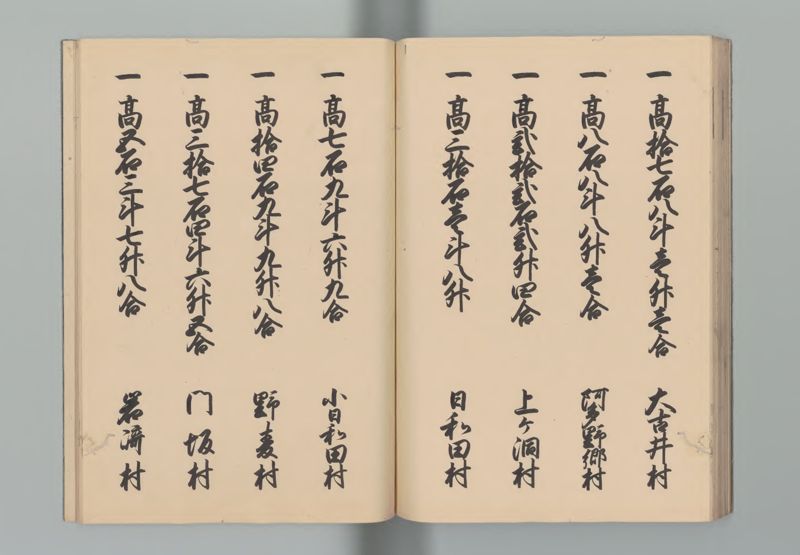 一 高拾七石八斗壱升壱合 大古井村
一 高八石八斗八升壱合 阿多野郷村
一 高弐拾弐石弐升四合 上ケ洞村
一 高三拾石壱斗八升 日和田村
一 高七石九斗六升九合 小日和田村
一 高拾四石九斗九升八合 野麦村
一 高三拾七石四斗六升五合 門坂村
一 高五石三斗七升八合 岩滑村